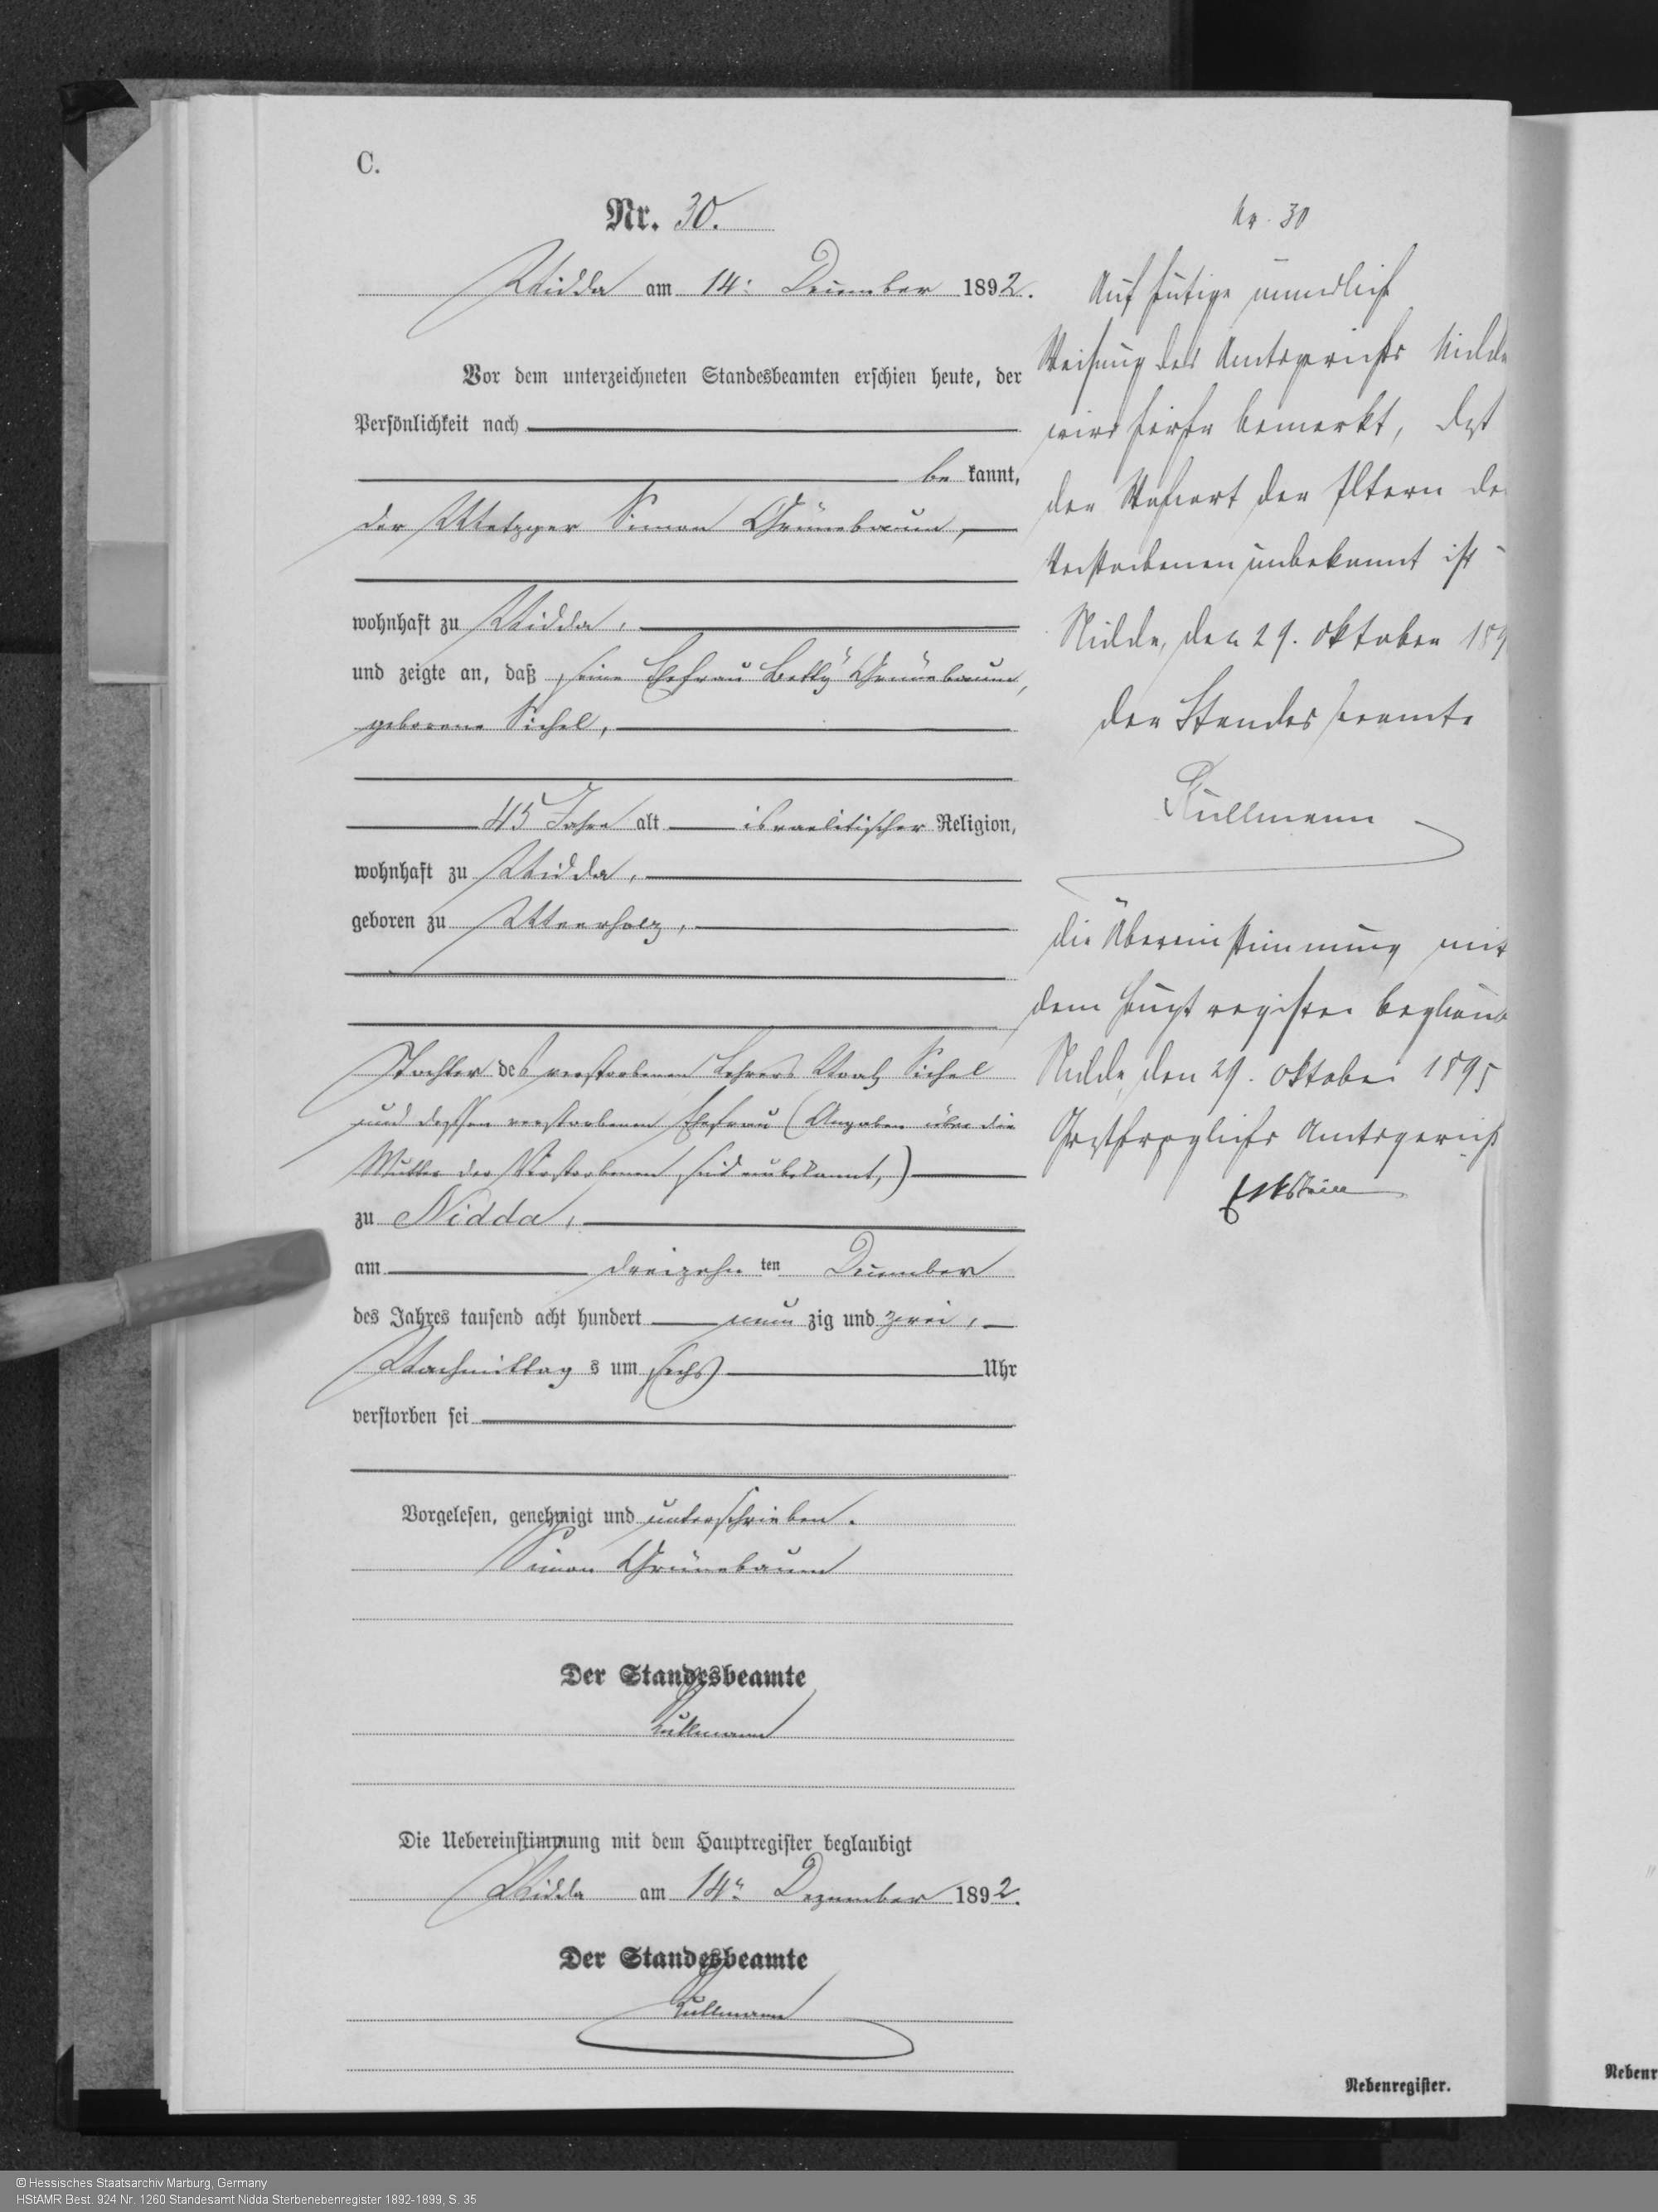 C.
Nr. 30.
Nidda am 14. December 1892.
Vor dem unterzeichneten Standesbeamten erschien heute, der
Persönlichkeit nach
be kannt,
der Metzger Simon Grünebaum,
wohnhaft zu Nidda,
und zeigte an, daß seine Ehefrau Betty Grünebaum,
geborene Sichel,
45 Jahre alt israelitischer Religion,
wohnhaft zu Nidda,
geboren zu Meerholz,
Tochter des verstorbenen Lehrers Sichel
und dessen verstorbenen Ehefrau (Angaben über die
Mutter der Verstorbenen sind unbekannt,)
zu Nidda,
am dreizehn ten December
des Jahres tausend acht hundert neun zig und zwei,
Nachmittag s um sechs Uhr
verstorben sei
Vorgelesen, genehmigt und unterschrieben.
Simon Grünebaum
Der Standesbeamte
Kullmann
Die Uebereinstimmung mit dem Hauptregister beglaubigt
Nidda am 14. Dezember 1892.
Der Standesbeamte
Kullmann
Nr. 30
Auf heutige mündlich
Weisung des Amtsgerichts Nidda
wird hierher bemerkt, daß
der Wohnort der Eltern de
Verstorbenen unbekannt ist
Nidda, den 29. Oktober 189
der Standesbeamte
Kullmann
die Übereinstimmung mit
dem Hauptregister beglaub
Nidda, den 29. Oktober 1895
Großherzogliches Amtsgericht
Eckstein
Nebenregister.
Nebenr
© Hessisches Staatsarchiv Marburg, Germany
HStAMR Best. 924 Nr. 1260 Standesamt Nidda Sterbenebenregister 1892-1899, S. 35